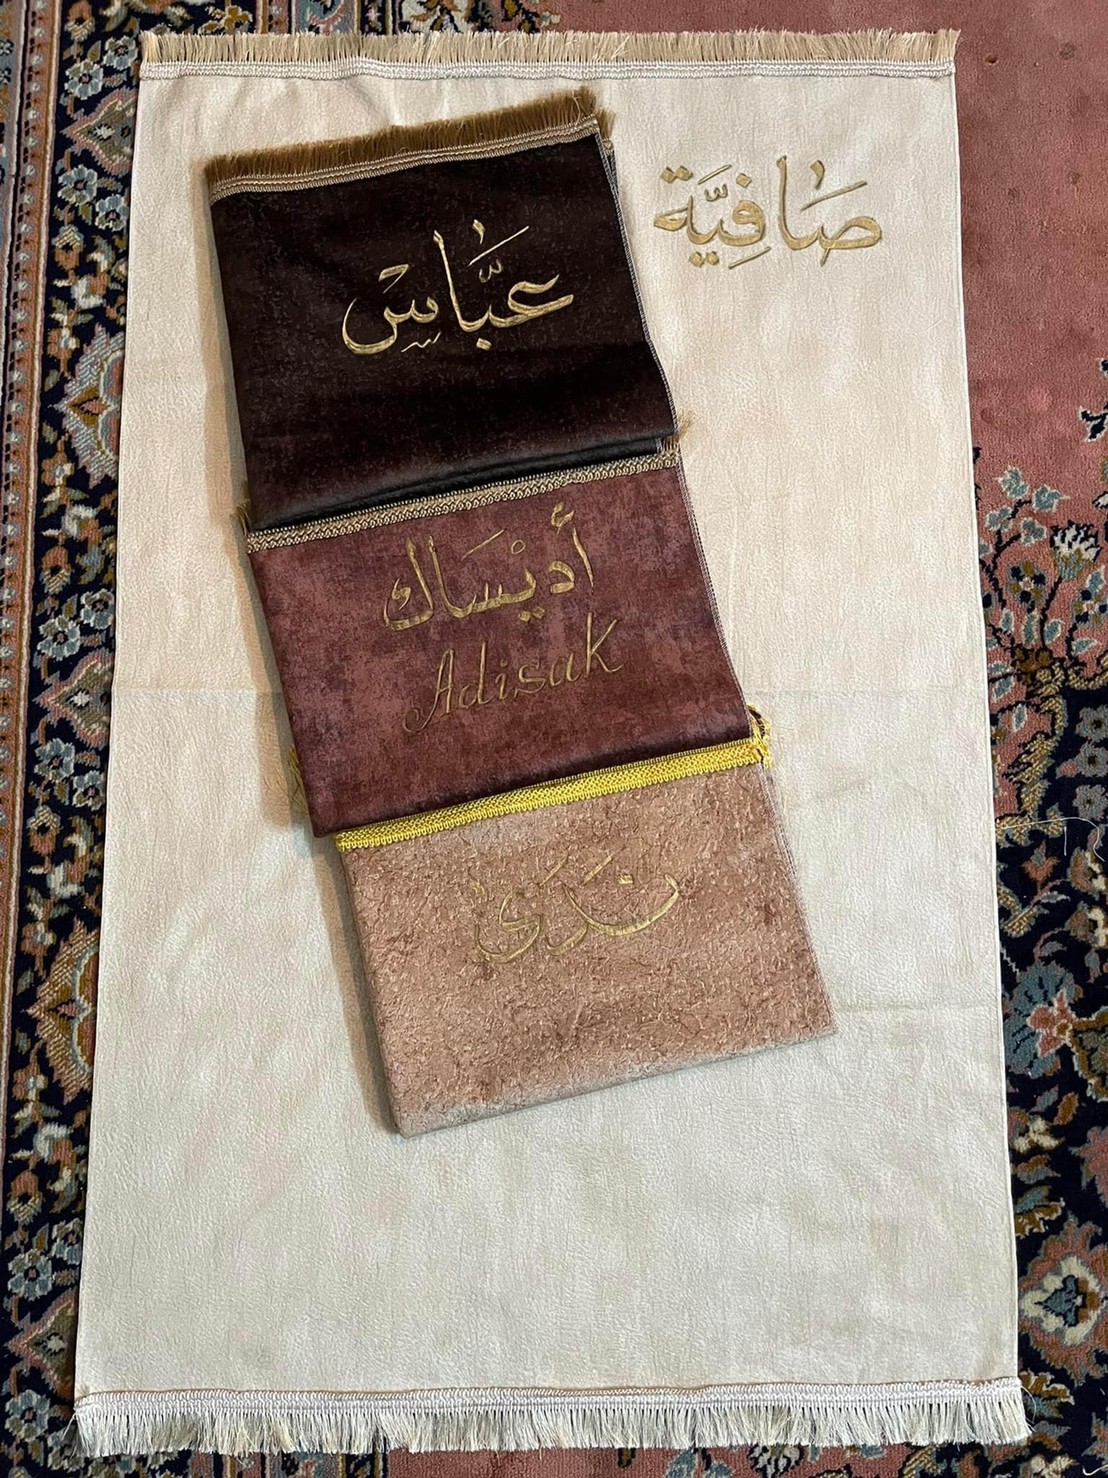 صَافِيَّة
عبَّاسْ
أديْسَاك
Adisak
نَدَى